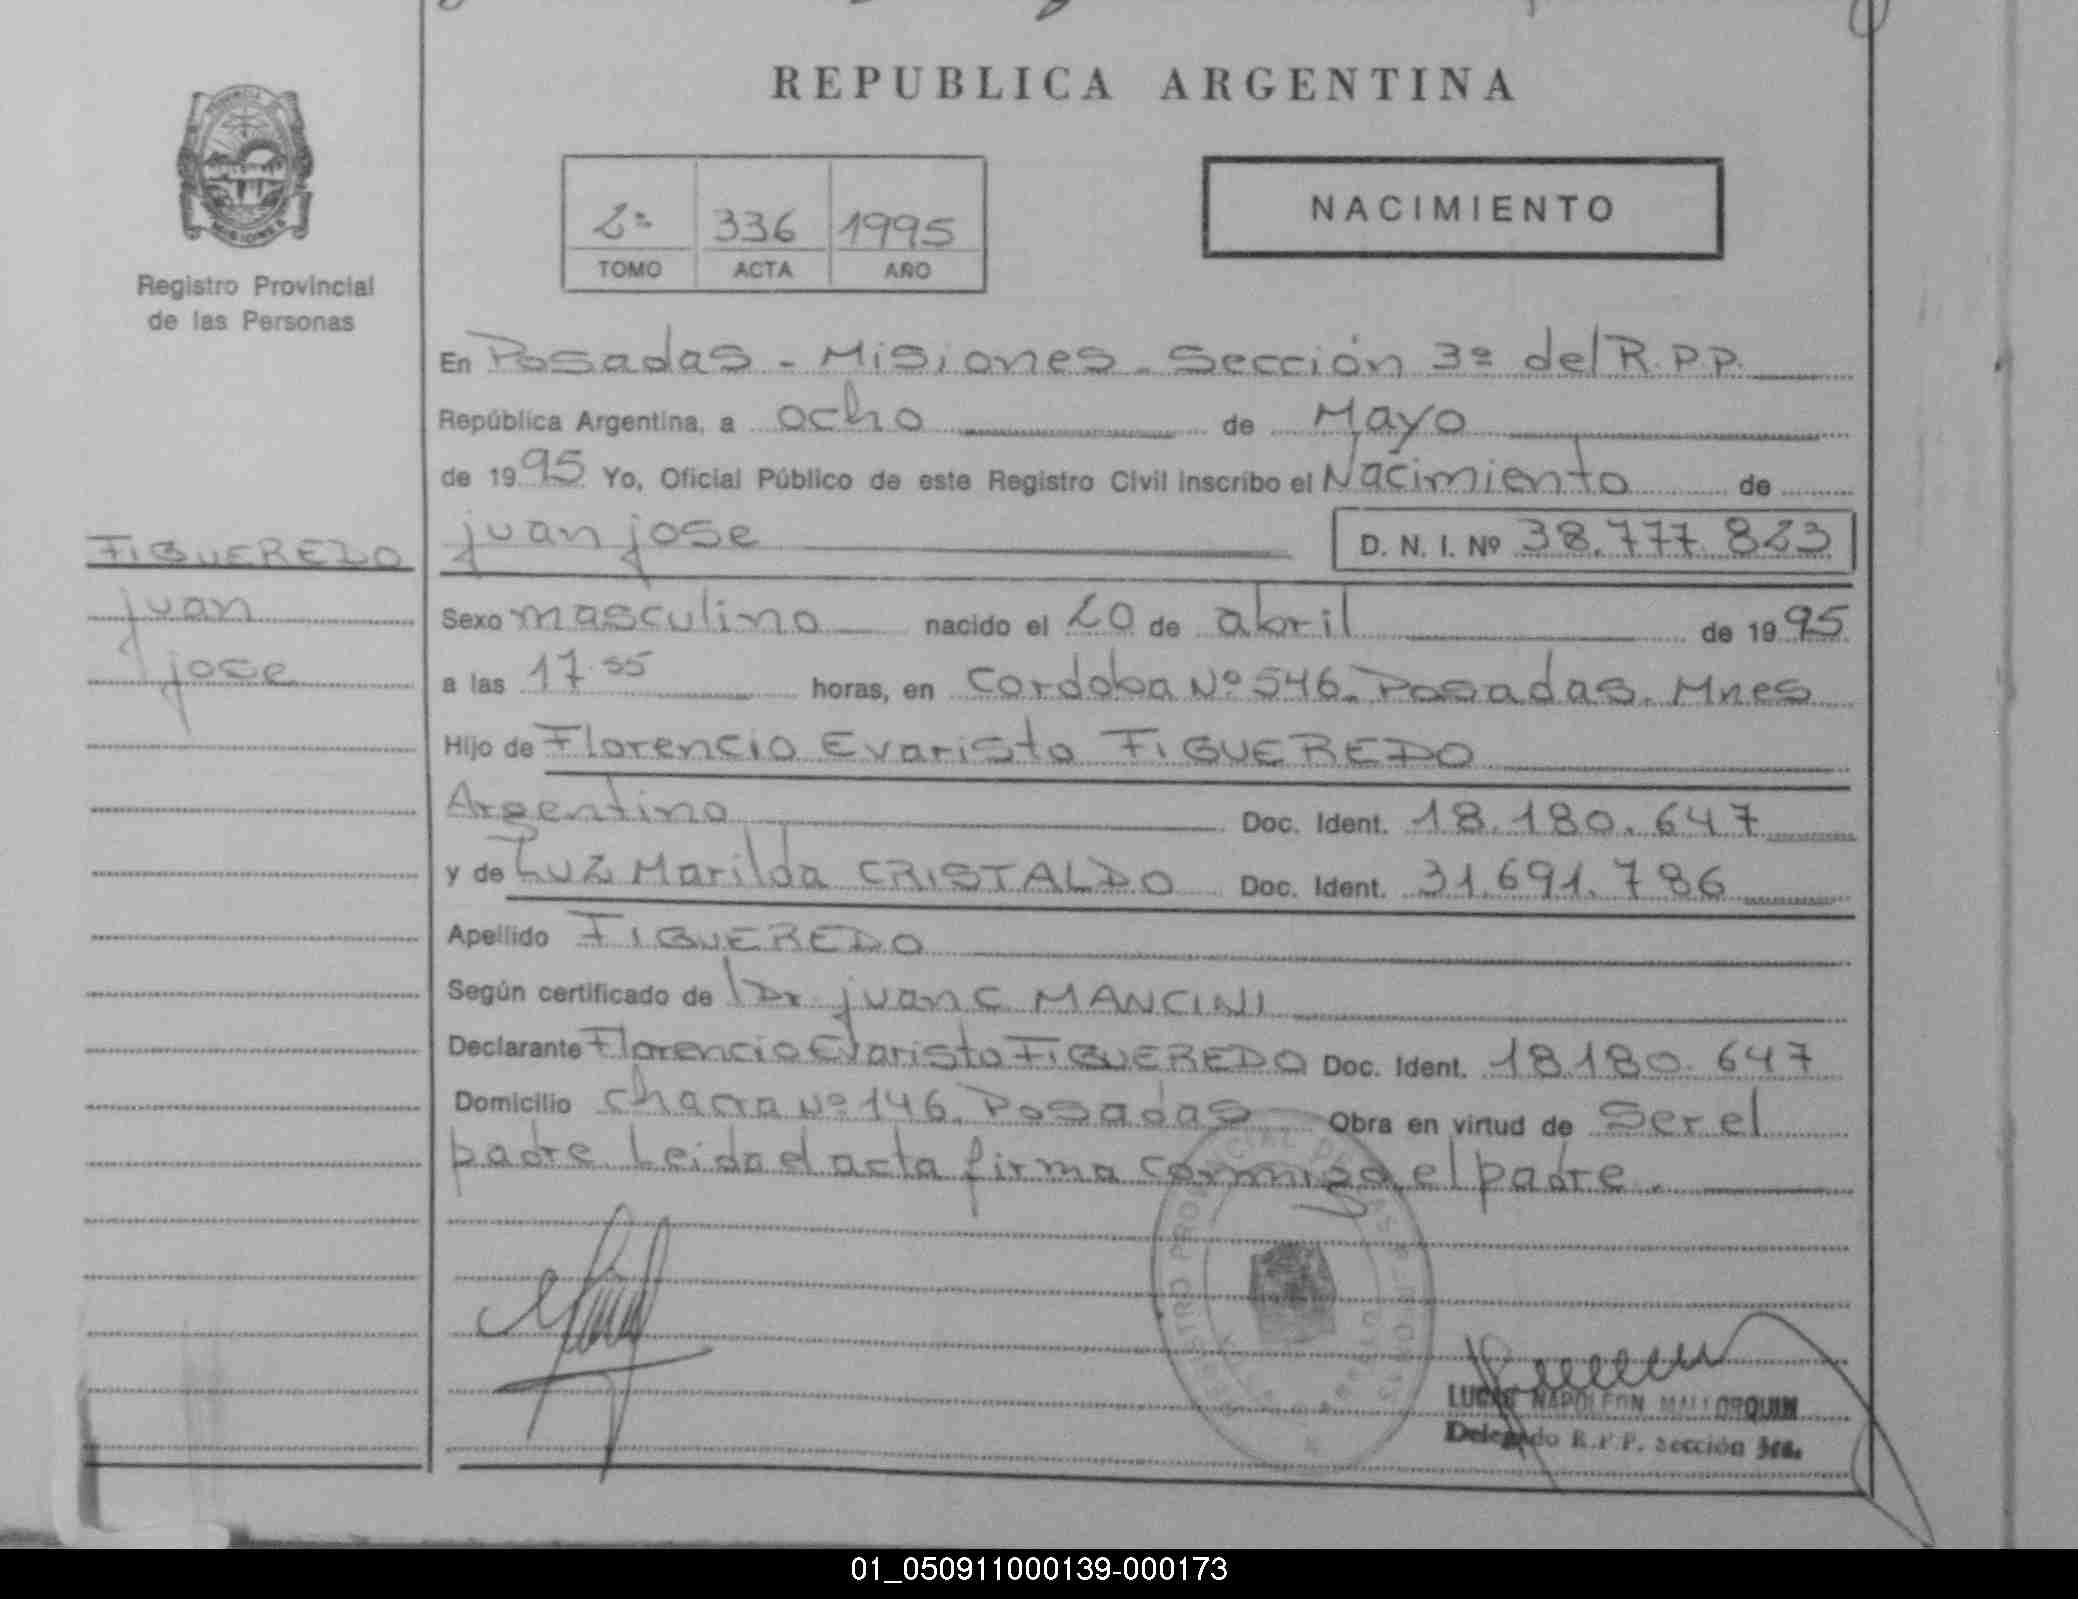 REPUBLICA ARGENTINA
2º 336 1995
TOMO ACTA AÑO
NACIMIENTO
Registro Provincial
de las Personas
FIGUEREDO
juan
jose
En Posadas - Misiones. Sección 3º del R.P.P.
República Argentina, a ocho de Mayo
de 1995 Yo, Oficial Público de este Registro Civil inscribo el Nacimiento de
juan jose D. N. I. Nº 38.777.823
Sexo masculino nacido el 20 de abril de 1995
a las 17.55 horas, en Cordoba Nº 546. Posadas. Mnes
Hijo de Florencio Evaristo FIGUEREDO
Argentino Doc. Ident. 18.180.647
y de Luz Marilda CRISTALDO Doc. Ident. 31.691.786
Apellido FIGUEREDO
Según certificado de Dr juan C MANCINI
Declarante Florencio Evaristo FIGUEREDO Doc. Ident. 18.180.647
Domicilio Chacra Nº 146. Posadas Obra en virtud de Ser el
padre. Leida el acta firma conmigo el padre.
NAPOLEON MALLORQUIN
Delegado R.P.P. Sección 3ra.
01_050911000139-000173